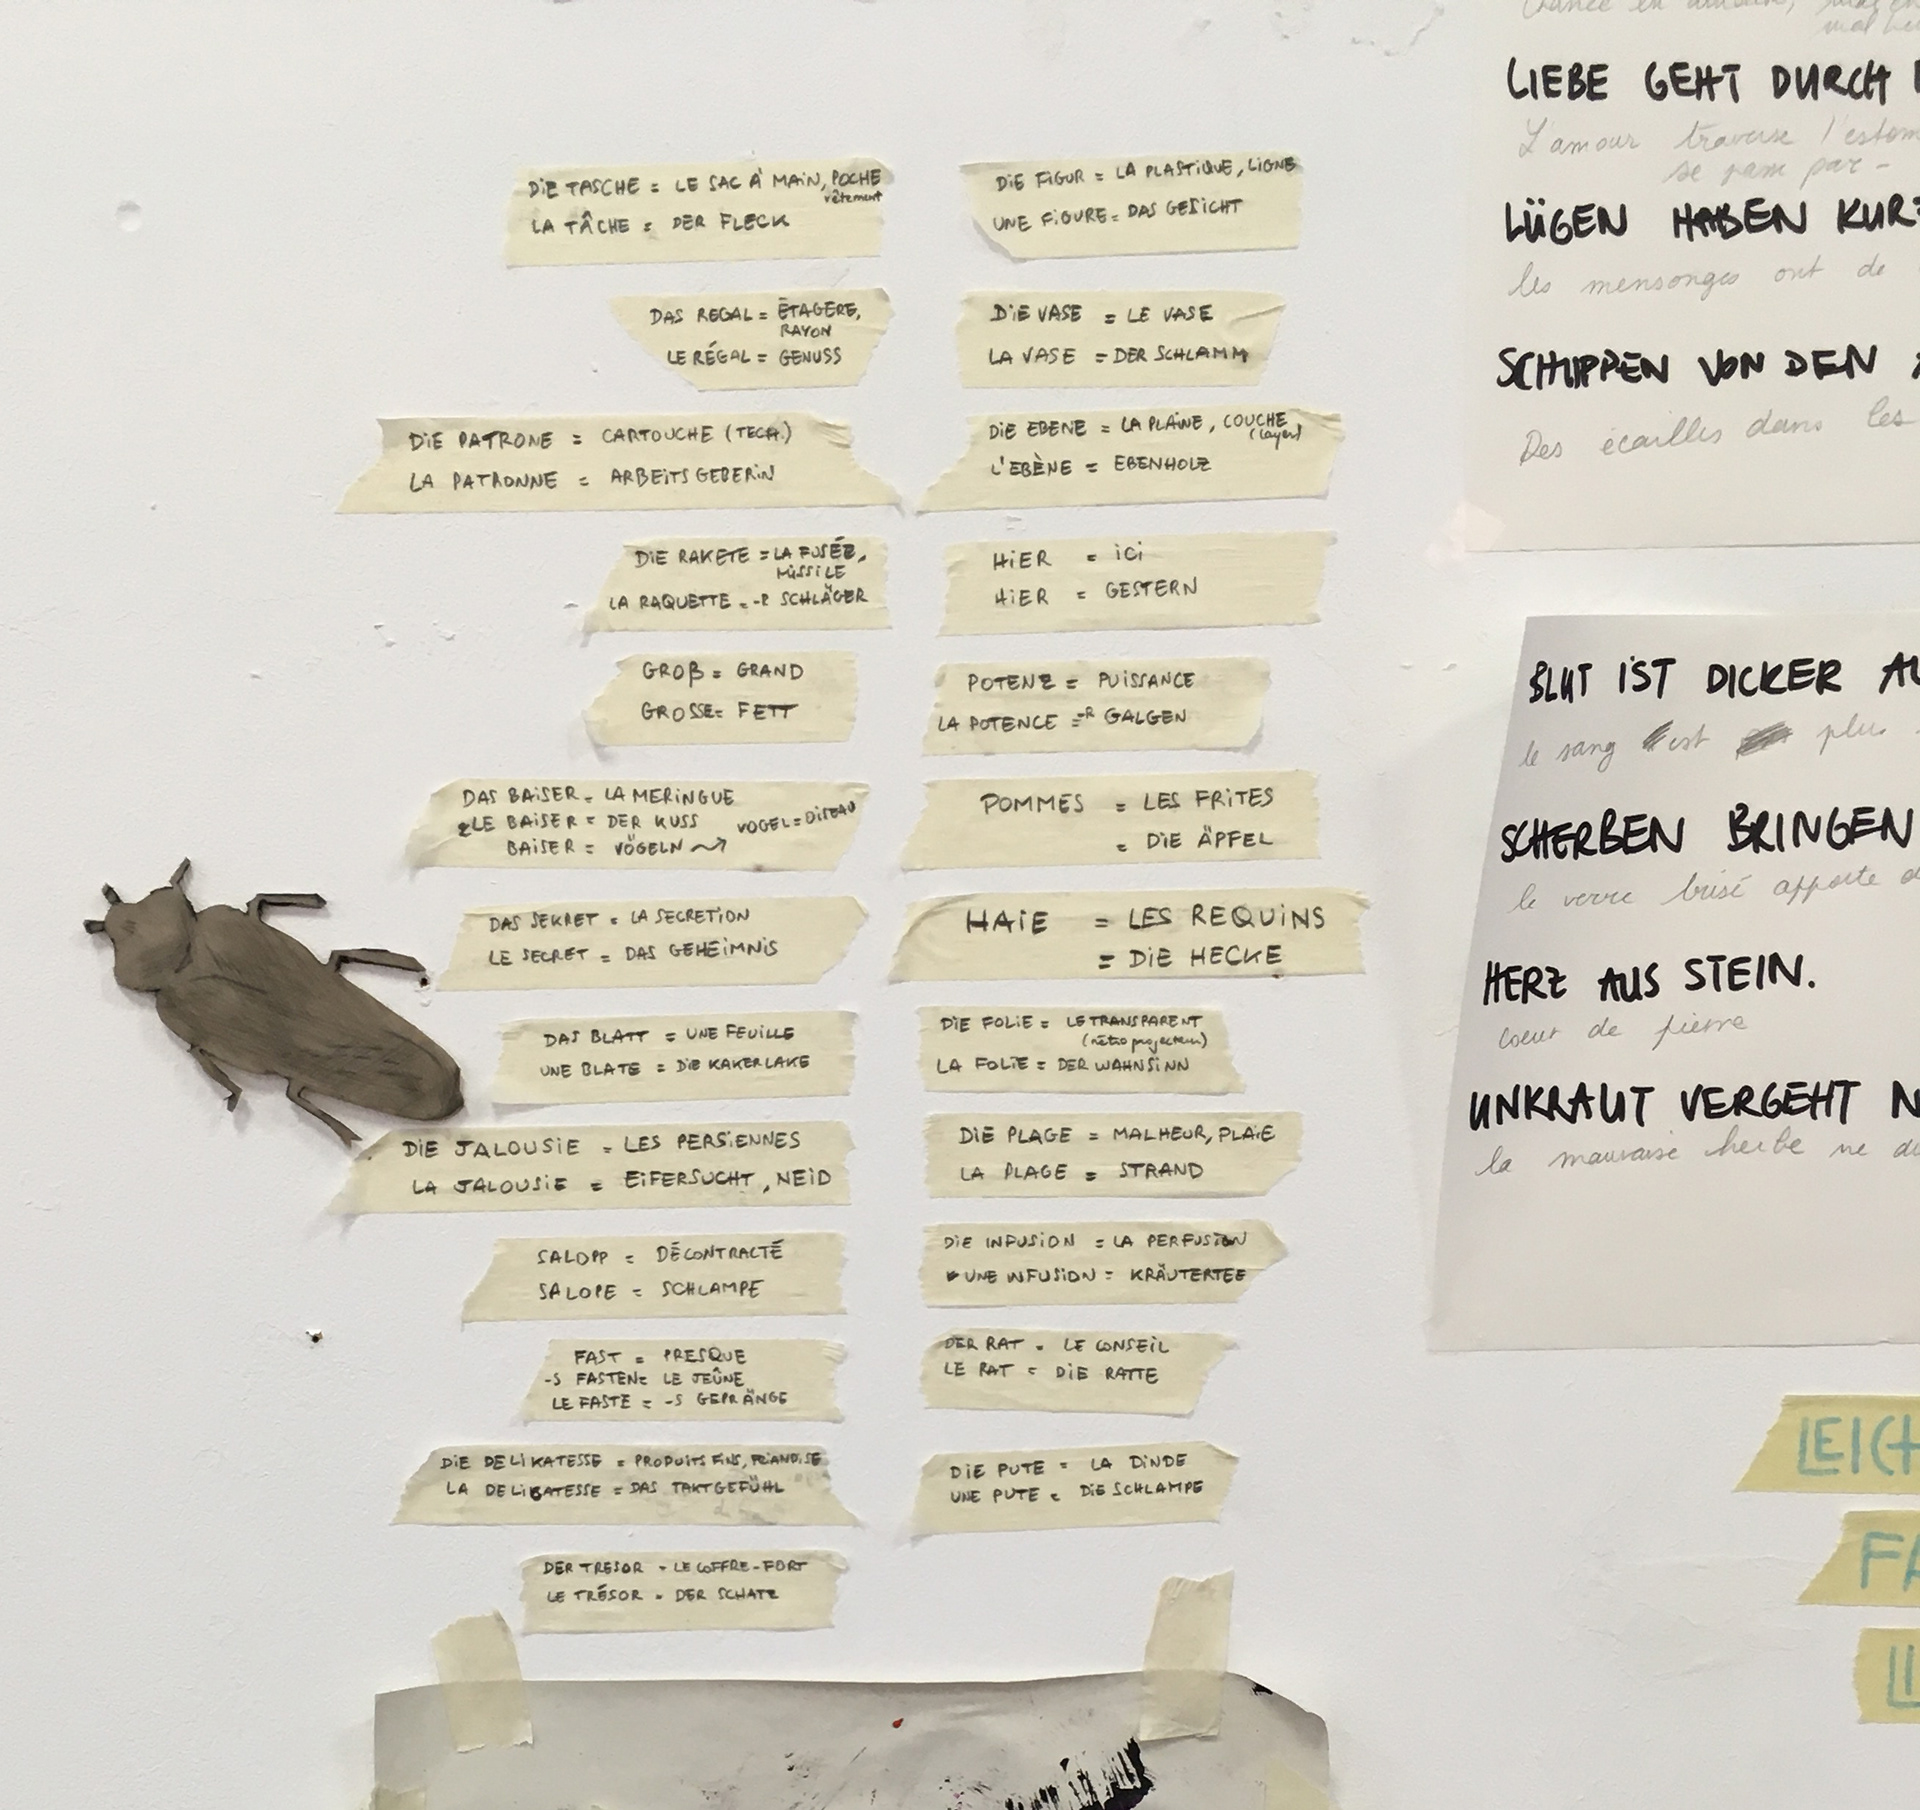 DIE TASCHE = LE SAC À MAIN, POCHE
vêtement
LA TÂCHE = DER FLECK
DAS REGAL = ÉTAGERE,
RAYON
LE RÉGAL = GENUSS
DIE PATRONE = CARTOUCHE (TECH.)
LA PATRONNE = ARBEITSGEBERIN
DIE RAKETE = LA FUSÉE,
MISSILE
LA RAQUETTE = -R SCHLÄGER
GROß = GRAND
GROSSE = FETT
DAS BAISER = LA MERINGUE
LE BAISER = DER KUSS
BAISER = VÖGELN
VOGEL = OISEAU
DAS SEKRET = LA SECRETION
LE SECRET = DAS GEHEIMNIS
DAS BLATT = UNE FEUILLE
UNE BLATE = DIE KAKERLAKE
DIE JALOUSIE = LES PERSIENNES
LA JALOUSIE = EIFERSUCHT, NEID
SALOPP = DÉCONTRACTÉ
SALOPE = SCHLAMPE
FAST = PRESQUE
-S FASTEN = LE JEÛNE
LE FASTE = -S GEPRÄNGE
DIE DELIKATESSE = PRODUITS FINS, FRIANDISE
LA DELICATESSE = DAS TAKTGEFÜHL
DER TRESOR = LE COFFRE-FORT
LE TRÉSOR = DER SCHATZ
DIE FIGUR = LA PLASTIQUE, LIGNE
UNE FIGURE = DAS GESICHT
DIE VASE = LE VASE
LA VASE = DER SCHLAMM
DIE EBENE = LA PLAINE, COUCHE
(layer)
L'EBÈNE = EBENHOLZ
HIER = ICI
HIER = GESTERN
POTENZ = PUISSANCE
LA POTENCE = -R GALGEN
POMMES = LES FRITES
= DIE ÄPFEL
HAIE = LES REQUINS
= DIE HECKE
DIE FOLIE = LE TRANSPARENT
(rétroprojecteur)
LA FOLIE = DER WAHNSINN
DIE PLAGE = MALHEUR, PLAIE
LA PLAGE = STRAND
DIE INFUSION = LA PERFUSION
UNE INFUSION = KRÄUTERTEE
DER RAT = LE CONSEIL
LE RAT = DIE RATTE
DIE PUTE = LA DINDE
UNE PUTE = DIE SCHLAMPE
Chance en amour,
LIEBE GEHT DURCH
L'amour traverse l'estom
par -
LÜGEN HABEN KURZ
les mensonges ont de
SCHUPPEN VON DEN
Des écailles dans les
BLUT IST DICKER AL
le sang est plus
SCHERBEN BRINGEN
le verre brisé apporte d
HERZ AUS STEIN.
coeur de pierre
UNKRAUT VERGEHT N
la mauvaise herbe ne
LEICH
FA
LI